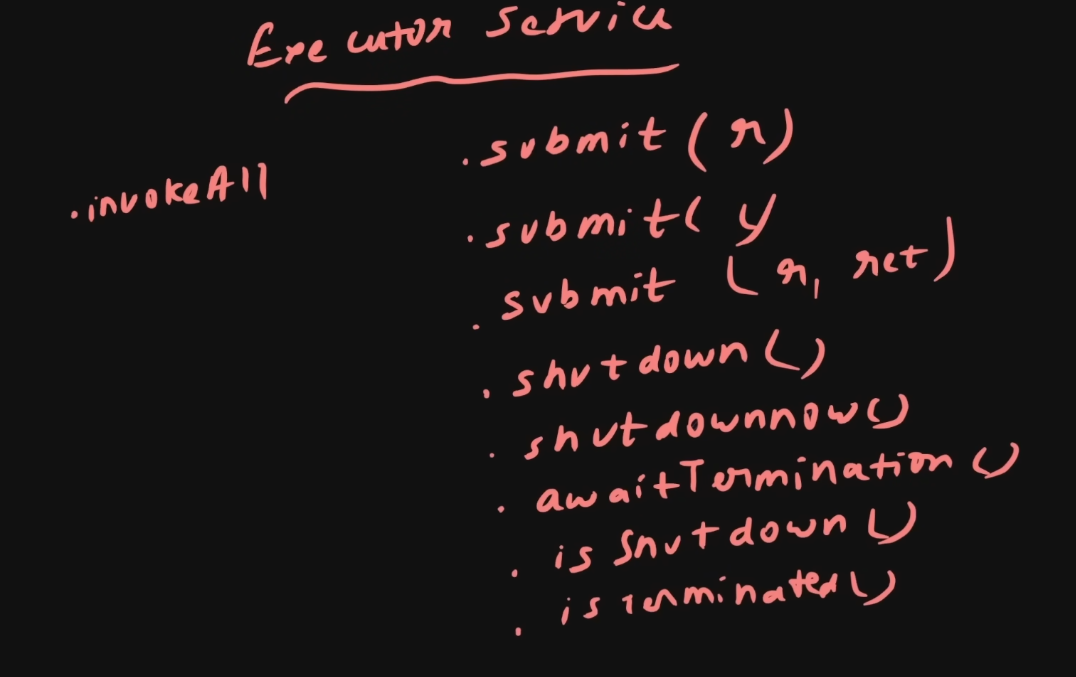 Executor Service
.invokeAll
.submit(r)
.submit( y
.submit (r, ret)
.shutdown()
.shutdownnow()
.awaitTermination()
.isShutdown()
.isTerminated()